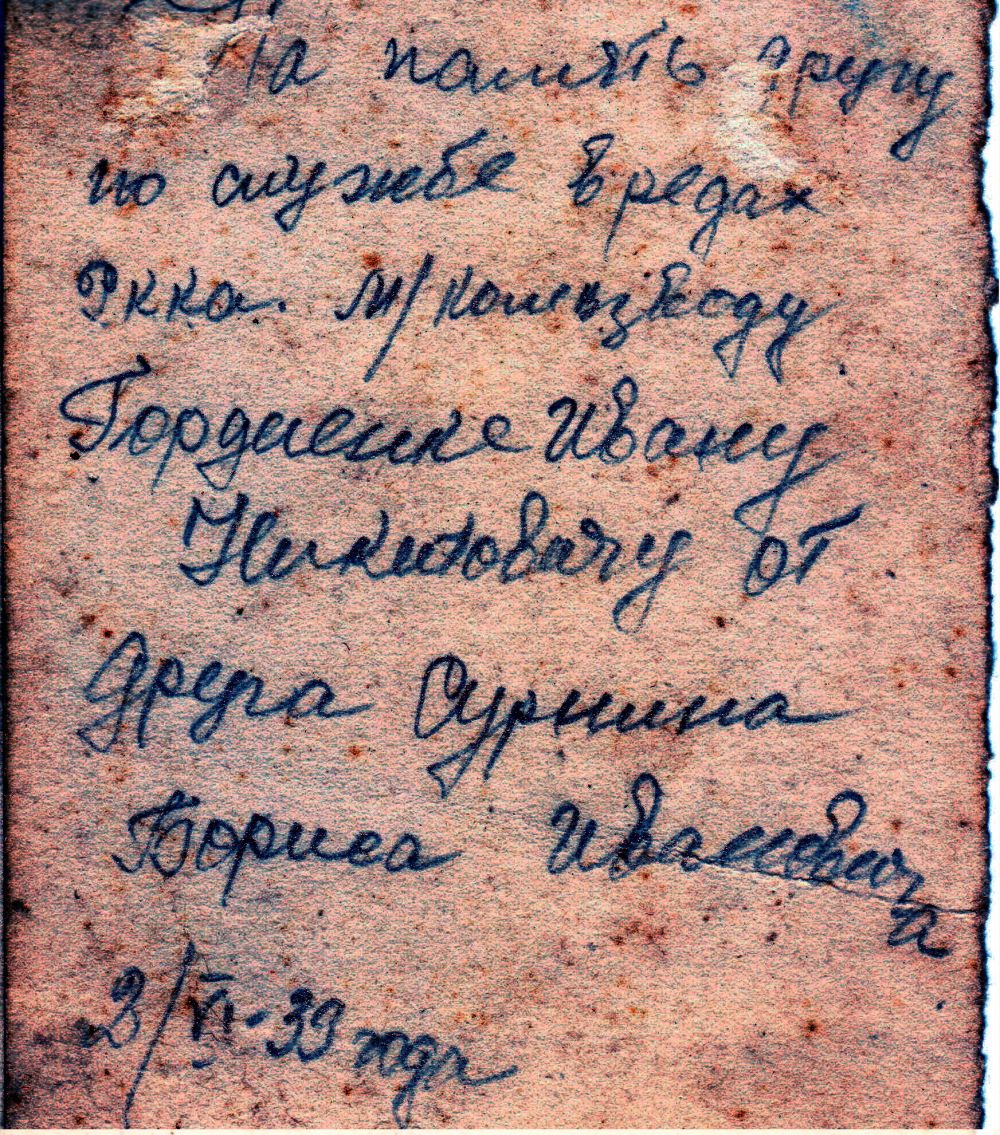 На память другу
по службе в редах
Ркка. М/комвзводу
Гордиенке Ивану
Никитовичу от
друга Сурнина
Бориса Ивановича
2/VI-33 года